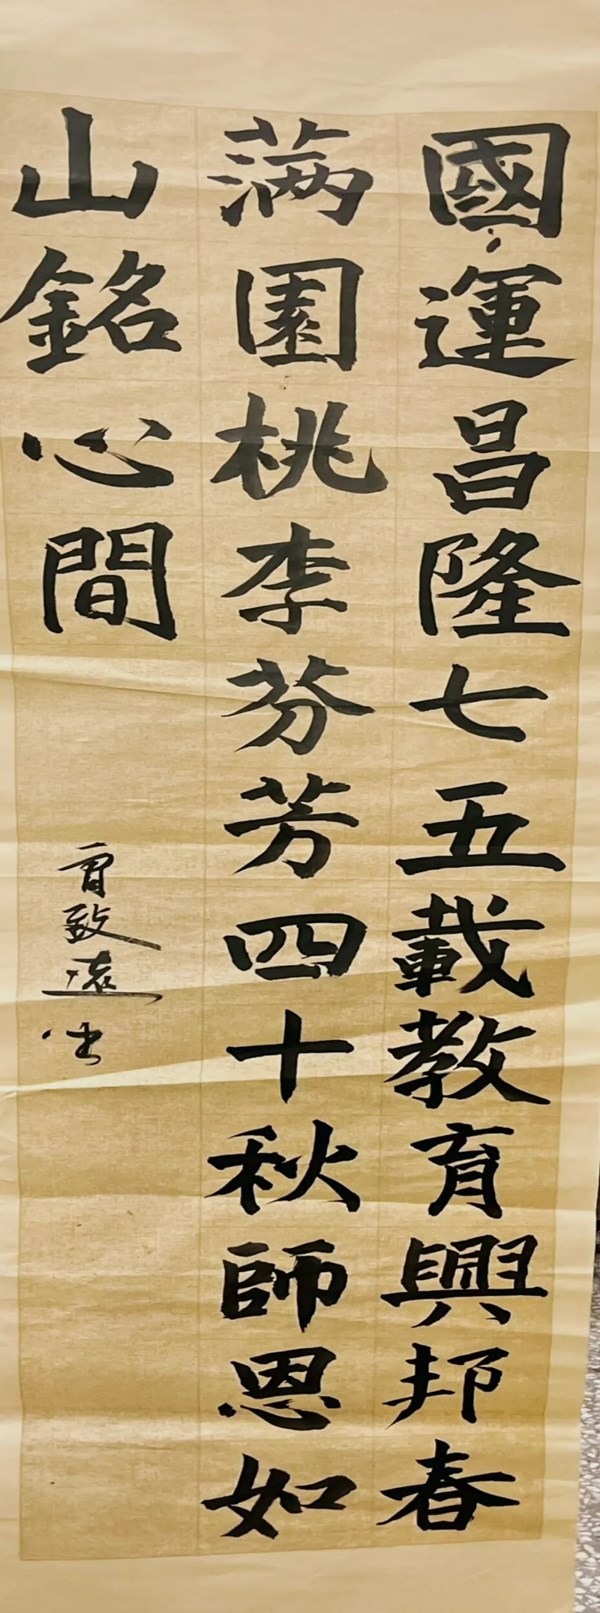 國運昌隆七五載教育興邦春
满園桃李芬芳四十秋師恩如
山銘心間
致遠书